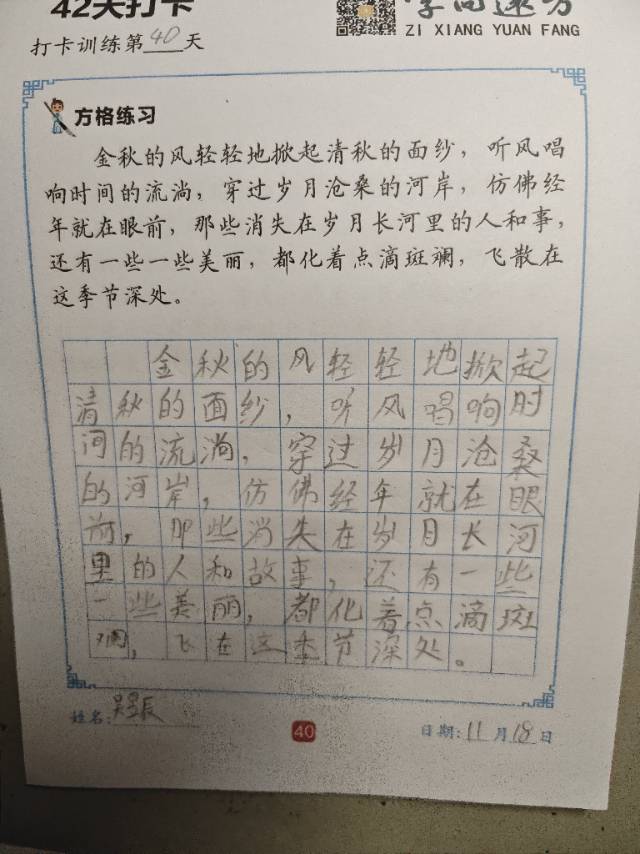 42天打卡
字向速方
ZI XIANG YUAN FANG
打卡训练第40天
方格练习
金秋的风轻轻地掀起清秋的面纱，听风唱
响时间的流淌，穿过岁月沧桑的河岸，仿佛经
年就在眼前，那些消失在岁月长河里的人和事，
还有一些一些美丽，都化着点滴斑斓，飞散在
这季节深处。
金秋的风轻轻地掀起
清秋的面纱，听风唱响时
间的流淌，穿过岁月沧桑
的河岸，仿佛经年就在眼
前，那些消失在岁月长河
里的人和故事，还有一些
一些美丽，都化着点滴斑
斓，飞在这季节深处。
姓名：
40
日期：11月18日